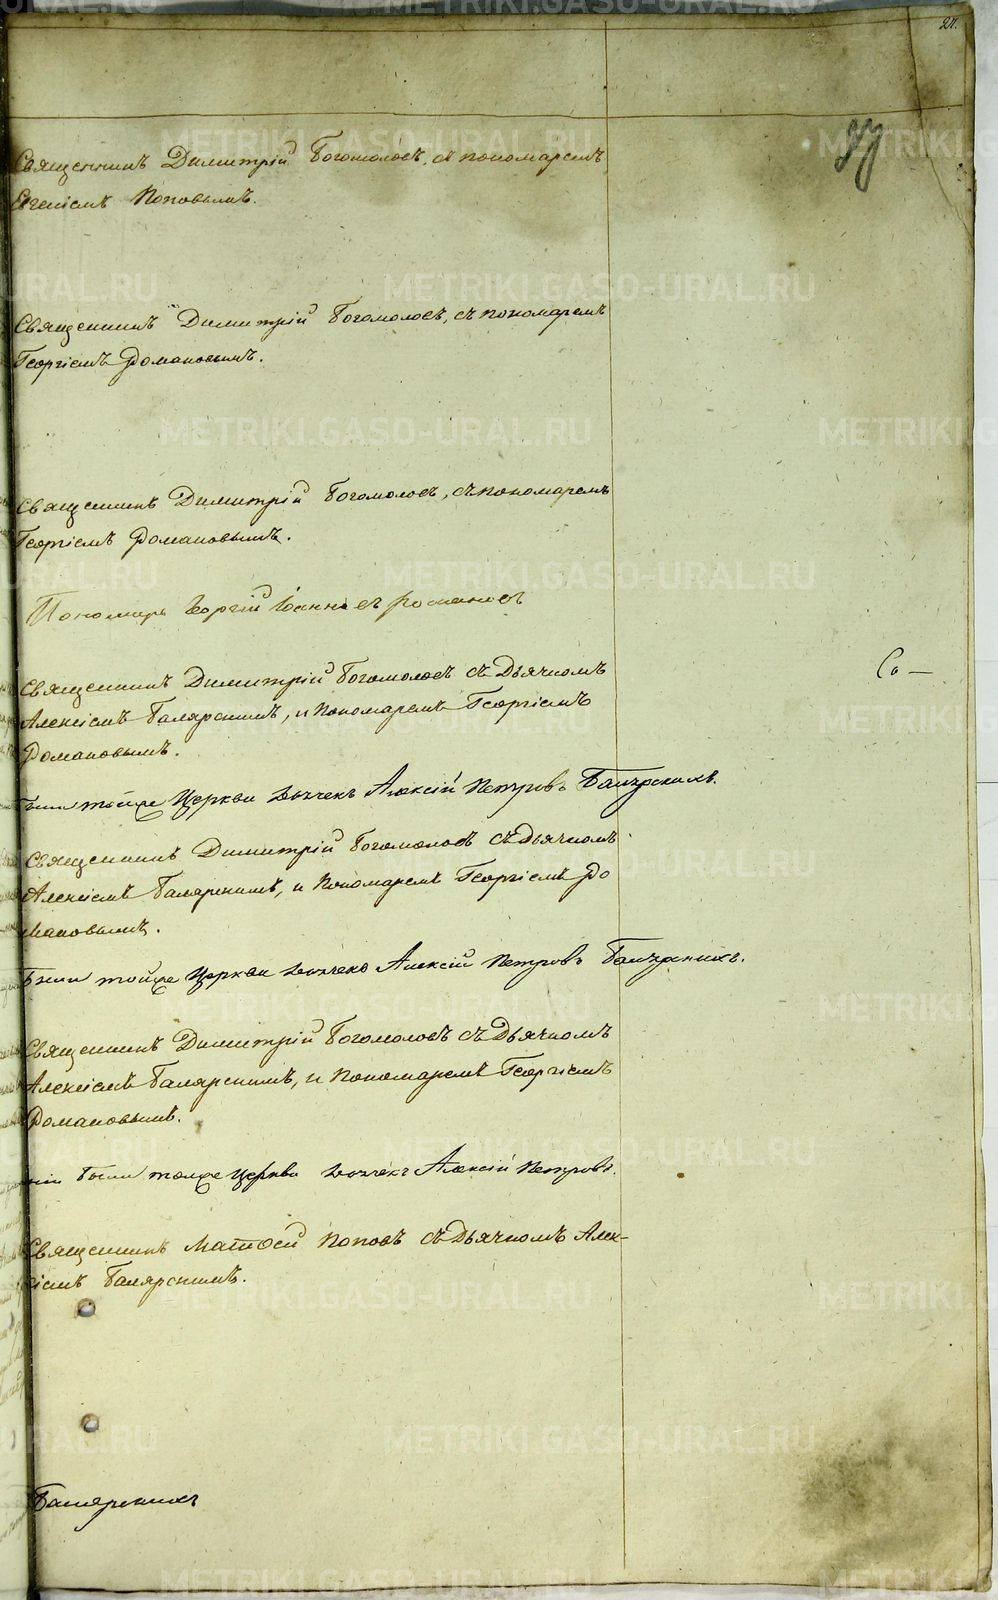 24.
Священникъ Димитрій Богомоловъ, съ пономаремъ
Евгеніемъ Поповымъ.
Священникъ Димитрій Богомоловъ, съ пономаремъ
Георгіемъ Романовымъ.
Священникъ Димитрій Богомоловъ, съ пономаремъ
Георгіемъ Романовымъ.
Пономарь Георгій Іоанновъ Романовъ
Священникъ Димитрій Богомоловъ съ Дьячкомъ
Со —
Алексіемъ Балярскимъ, и Пономаремъ Георгіемъ
Романовымъ.
тойже Церкви Дьячекъ Алексій Петровъ
Священникъ Димитрій Богомоловъ съ Дьячкомъ
Алексіемъ Балярскимъ, и Пономаремъ Георгіемъ Ро
мановымъ.
тойже Церкви Дьячекъ Алексій Петровъ
Священникъ Димитрій Богомоловъ съ Дьячкомъ
Алексіемъ Балярскимъ, и Пономаремъ Георгіемъ
Романовымъ.
былъ тойже Церкви Дьячекъ Алексій Петровъ
Священникъ Матѳей Поповъ съ Дьячкомъ Алек-
сіемъ Балярскимъ.
METRIKI.GASO-URAL.RU